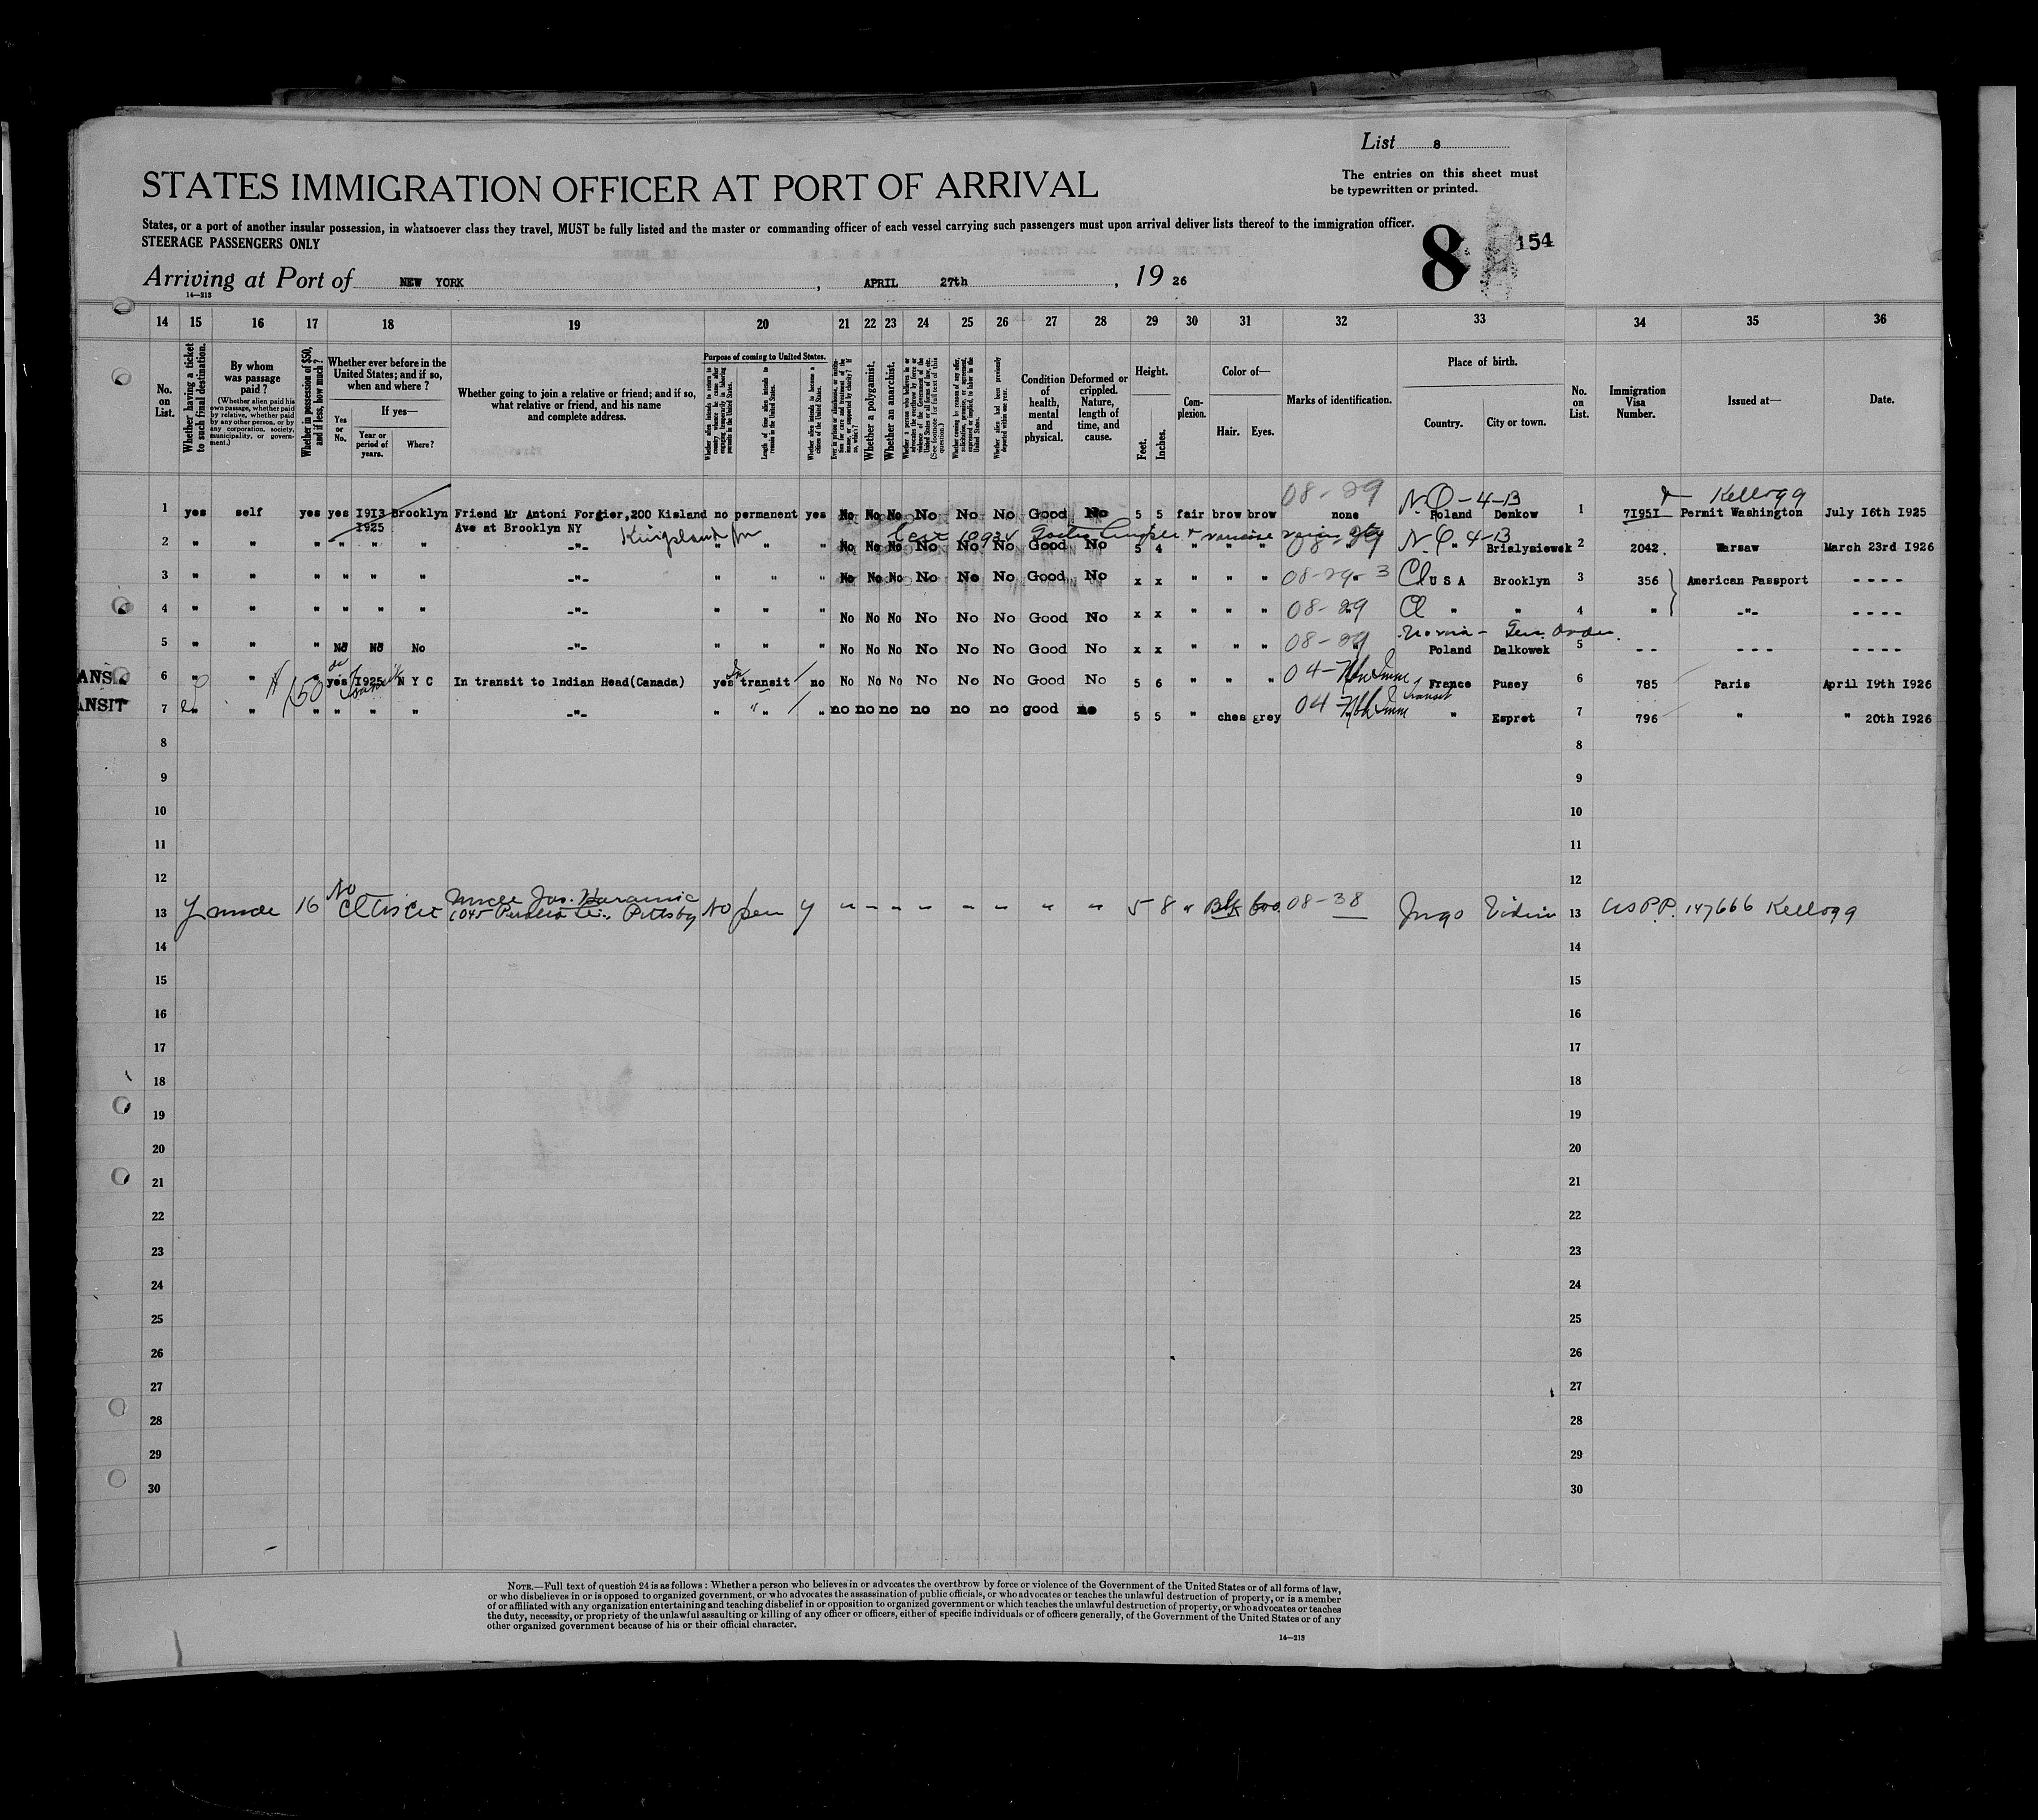 List 8
The entries on this sheet must
be typewritten or printed.
STATES IMMIGRATION OFFICER AT PORT OF ARRIVAL
States, or a port of another insular possession, in whatsoever class they travel, MUST be fully listed and the master or commanding officer of each vessel carrying such passengers must upon arrival deliver lists thereof to the immigration officer.
STEERAGE PASSENGERS ONLY
8 154
Arriving at Port of NEW YORK, APRIL 27th, 19 26
14—213
14 15 16 17 18 19 20 21 22 23 24 25 26 27 28 29 30 31 32 33 34 35 36
No. on List.
Whether having a ticket to such final destination.
By whom was passage paid?
(Whether alien paid his own passage, whether paid by relative, whether paid by any other person, or by any corporation, society, municipality, or government.)
Whether in possession of $50, and if less, how much?
Whether ever before in the United States; and if so, when and where?
Yes or No.
If yes—
Year or period of years.
Where?
Whether going to join a relative or friend; and if so, what relative or friend, and his name and complete address.
Purpose of coming to United States.
Length of time alien intends to remain in the United States.
Whether alien intends to become a citizen of the United States.
Whether a polygamist.
Whether an anarchist.
Condition of health, mental and physical.
Deformed or crippled. Nature, length of time, and cause.
Height.
Feet. Inches.
Complexion.
Color of—
Hair. Eyes.
Marks of identification.
Place of birth.
Country. City or town.
No. on List.
Immigration Visa Number.
Issued at—
Date.
08-29 N.Q-4-B Kellogg
1 yes self yes yes 1913 Brooklyn Friend Mr Antoni Forgier, 200 Kisland no permanent yes No No No No No No Good No 5 5 fair brow brow none Poland Denkow 1 71951 Permit Washington July 16th 1925
1925 Ave at Brooklyn NY
Kingsland
2 " " " " " " -"- " " " No No No No No No Good No 5 4 " " " 08-29 N.Q 4-B " Brialysiewek 2 2042 Warsaw March 23rd 1926
3 " " " " " " -"- " " " No No No No No No Good No x x " " " 08-29 3 Cl U S A Brooklyn 3 356 American Passport ----
4 " " " " " " -"- " " " No No No No No No Good No x x " " " 08-29 Cl " " 4 " -"- ----
5 " " " No No No -"- " " " No No No No No No Good No x x " " " 08-29 Poland Dalkowek 5 -- --- ----
6 " " " 50 yes 1925 N Y C In transit to Indian Head(Canada) yes In transit no No No No No No No Good No 5 6 " " " 04-Non Imm France Pusey 6 785 Paris April 19th 1926
Transit
7 " " " " " " -"- " " " no no no no no no good no 5 5 " ches grey 04 Non Imm " Espret 7 796 " " 20th 1926
8 8
9 9
10 10
11 11
12 12
13 y uncle 16 No Uncle Jos. 1045 Pittsbg No per y 5 8 " Blk bro. 08-38 Jugo Vidin 13 USPP. 147666 Kellogg
14 14
15 15
16 16
17 17
18 18
19 19
20 20
21 21
22 22
23 23
24 24
25 25
26 26
27 27
28 28
29 29
30 30
NOTE.—Full text of question 24 is as follows: Whether a person who believes in or advocates the overthrow by force or violence of the Government of the United States or of all forms of law,
or who disbelieves in or is opposed to organized government, or who advocates the assassination of public officials, or who advocates or teaches the unlawful destruction of property, or is a member
of or affiliated with any organization entertaining and teaching disbelief in or opposition to organized government or which teaches the unlawful destruction of property, or who advocates or teaches
the duty, necessity, or propriety of the unlawful assaulting or killing of any officer or officers, either of specific individuals or of officers generally, of the Government of the United States or of any
other organized government because of his or their official character.
14—213